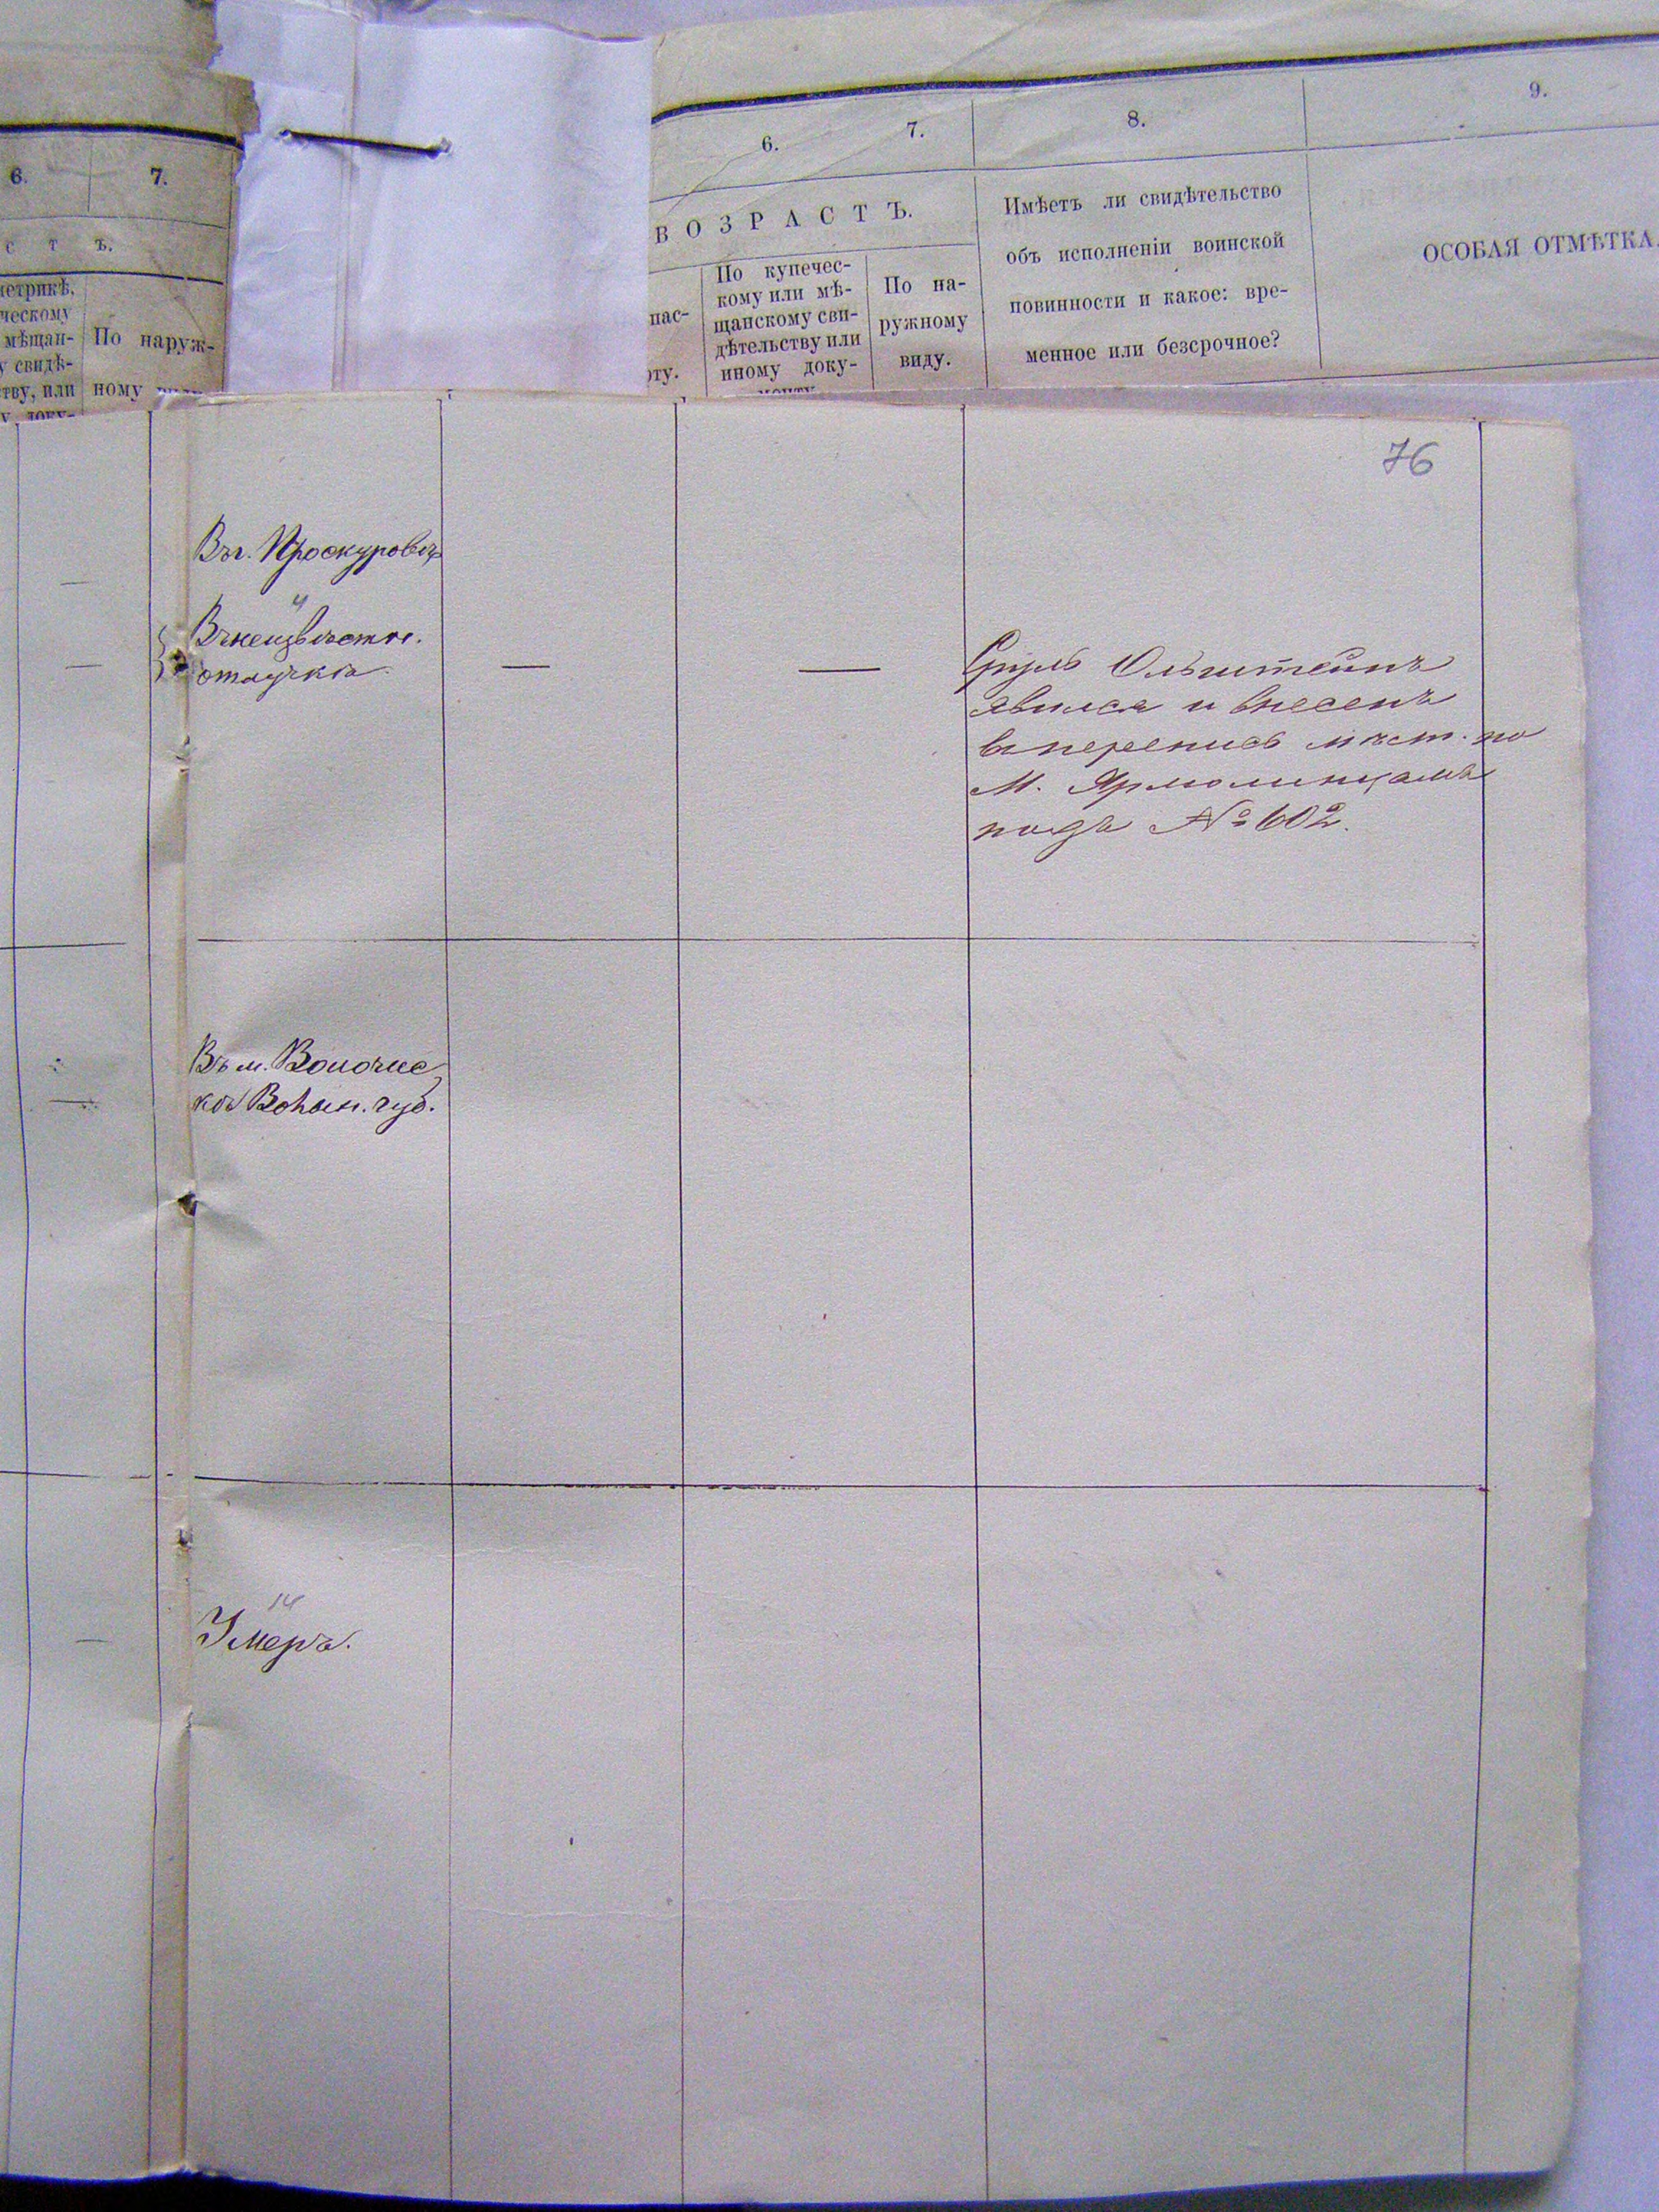 6.
7.
С Т Ъ.
метрикѣ,
ческому
мѣщан-
у свидѣ-
тву, или
По наруж-
ному
6.
7.
8.
9.
ВОЗРАСТЪ.
пас-
рту.
По купечес-
кому или мѣ-
щанскому сви-
дѣтельству или
иному доку-
По на-
ружному
виду.
Имѣетъ ли свидѣтельство
объ исполненіи воинской
повинности и какое: вре-
менное или безсрочное?
ОСОБАЯ ОТМѢТКА.
76
Въ г. Проскуровѣ
Въ неизвѣстн.
отлучкѣ
Сруль Ольштейнъ
явился и внесенъ
въ перепись мѣст. по
М. Ярмолинцамъ
подъ № 602.
Въ м. Волочис
кѣ Волын. губ.
14
Умеръ.